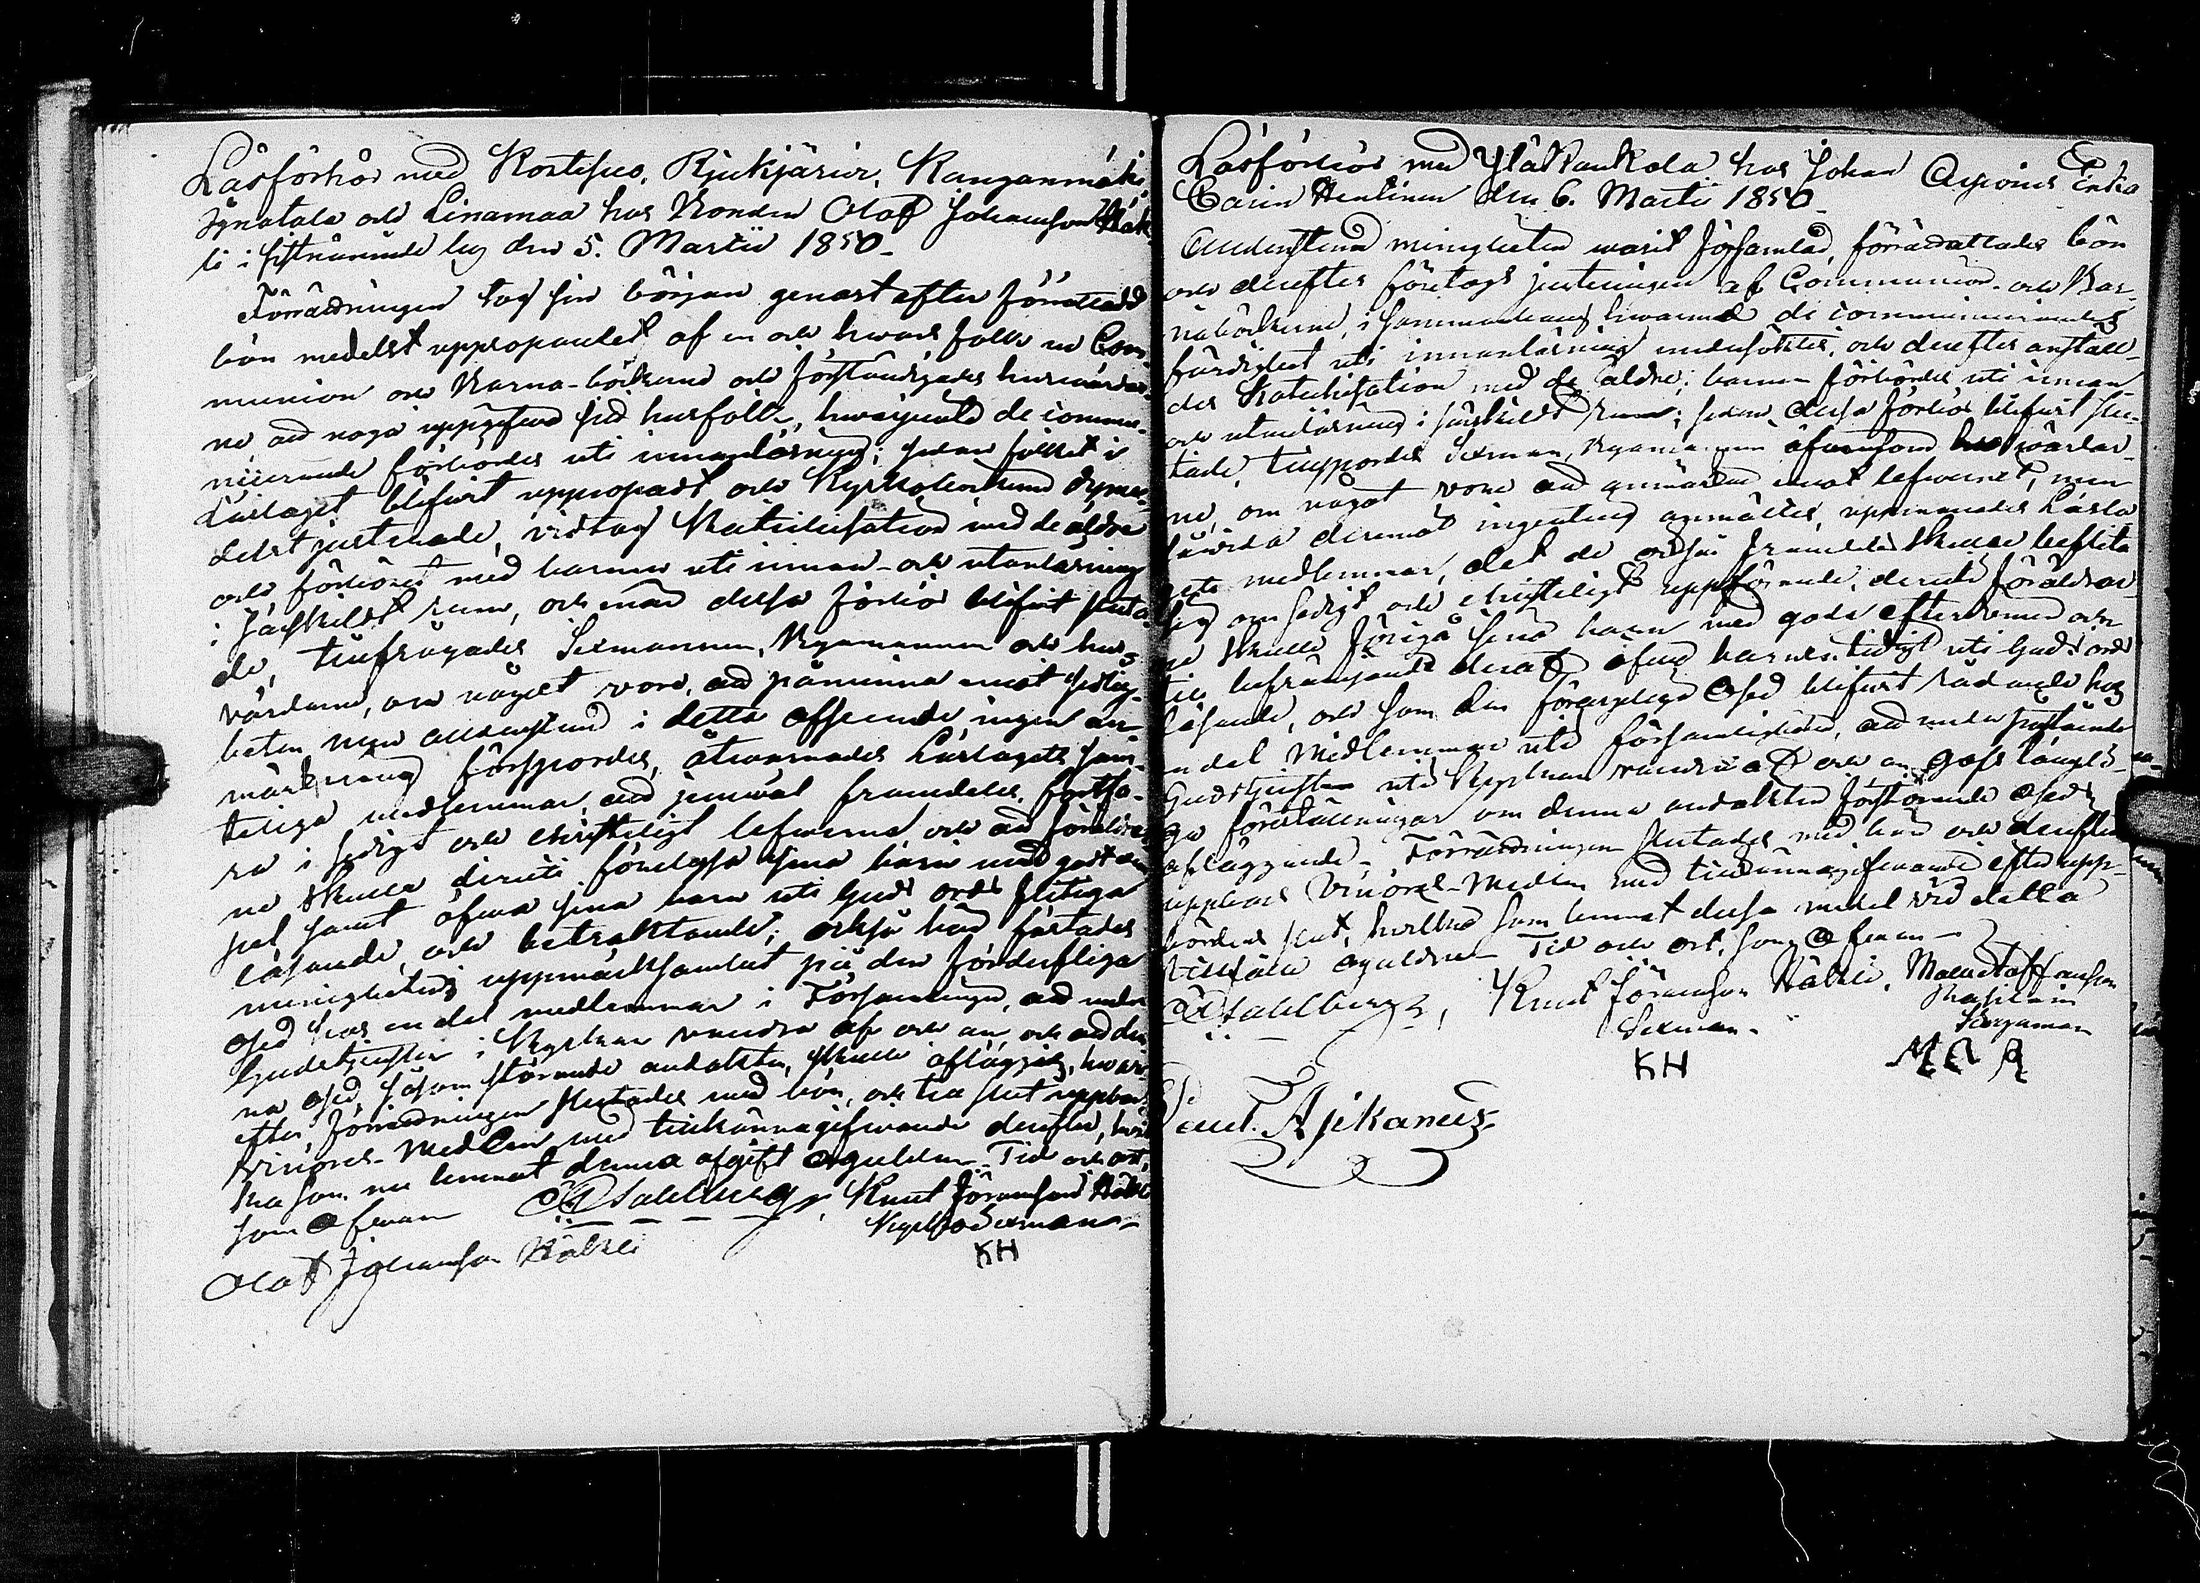 Läsförhör med Kortesuo, Rjukjärwi, Kanganmäki,
Ignatala och Linamaa hos Bonden Olof Johansson Häk-
li i sistnämnde by den 5. Martii 1850.
Förrättningen tog sin början genast efter förrättad
bön medelst uppropandet af en och hwars folk ur Com-
munion och Barna-böckerne och förständigades husvärdar-
ne, att noga uppgifwa sitt husfolk, hwarjemte de commu-
nicerande förhördes uti innanläsning; sedan folket i
Läslaget blifwit uppropadt och Kyrkoböckerne dyme-
delst justerade, vidtog Katechisation med de äldre
och förhöret med barnen uti innan- och utanläsning
i särskildt rum, och när dessa förhör blifwit sluta-
de, tillfrågades Sexmannen, Byamannen och hus-
värdarne, om något vore, att påminna emot sedlig-
heten, men alldenstund i detta afseende ingen an-
märkning förspordes, åtwarnades Läslagets sam-
teliga medlemmar, att jemwäl framdeles fortfa-
ra i sedigt och christeligt lefwerne och att föräldrar-
ne skulle deruti föregå sina barn med godt exem-
pel samt öfwa sina barn uti Guds ords flitiga
läsande och betraktande; också häd fästades
menighetens uppmärksamhet på den förderfliga
osed hos en del medlemmar i Församlingen, att under
Gudstjensten i Kyrkan vandra af och an, och att den-
na osed, såsom störande andakten, skulle afläggas, hwar-
efter förrättningen slutades med bön, och tia slut uppbars
Vinöres-Medlen med tillkännagifwande derefter, hwil-
ka som nu lemnat denna afgift oguldne. Tid och ort,
som ofwan Stahlberg, Knut Göransson Häkli
Kyrkosexman
KH
Olof Johansson Häkli
Läsförhör med Yläkankola hos Johan Enka
Carin Hentinen den 6. Martii 1850
Alldenstund menigheten warit församlad, förrättades bön
och derefter företogs justeringen af Communion- och Bar-
naböckerne, i sammanhang hwarmed de communicerandes
färdighet uti innanläsning undersöktes, och derefter anställ-
des Katechisation med de äldre; barnen förhördes uti innan
och utanläsning i särskildt rum; sedan dessa förhör blifwit slu-
tade, tillspordes Sexman, Byamannen äfwensom husvärdar-
ne, om något vore att anmärka emot lefwernet, men
då dock deremot ingenting anmältes, uppmanades Läsla-
gets medlemmar, det de också framdeles skulle beflita
sig om sedigt och christeligt uppförande, deruti föräldrar-
ne skulle föregå sina barn med goda efterdömen och
till befrämjande deraf öfwa barnen tidigt uti Guds ords
läsande, och som den förargliga osed blifwit rådande hos
en del Medlemmar uti församlingen, att under påstående
Gudstjensten uti Kyrkan vandra af och an, gafs lämpli-
ga föreställningar om denna andakten förstörande oseds
afläggande. Förrättningen slutades med bön och derefter
uppbars Vinöres-Medlen med tillkännagifwande efter upp-
bördens slut, hwilka som lemnat dessa medel vid detta
tillfälle oguldne. Tid och ort, som ofwan
Stahlberg, Knut Göransson Häkli,
Sexman. Byaman
KH MOR